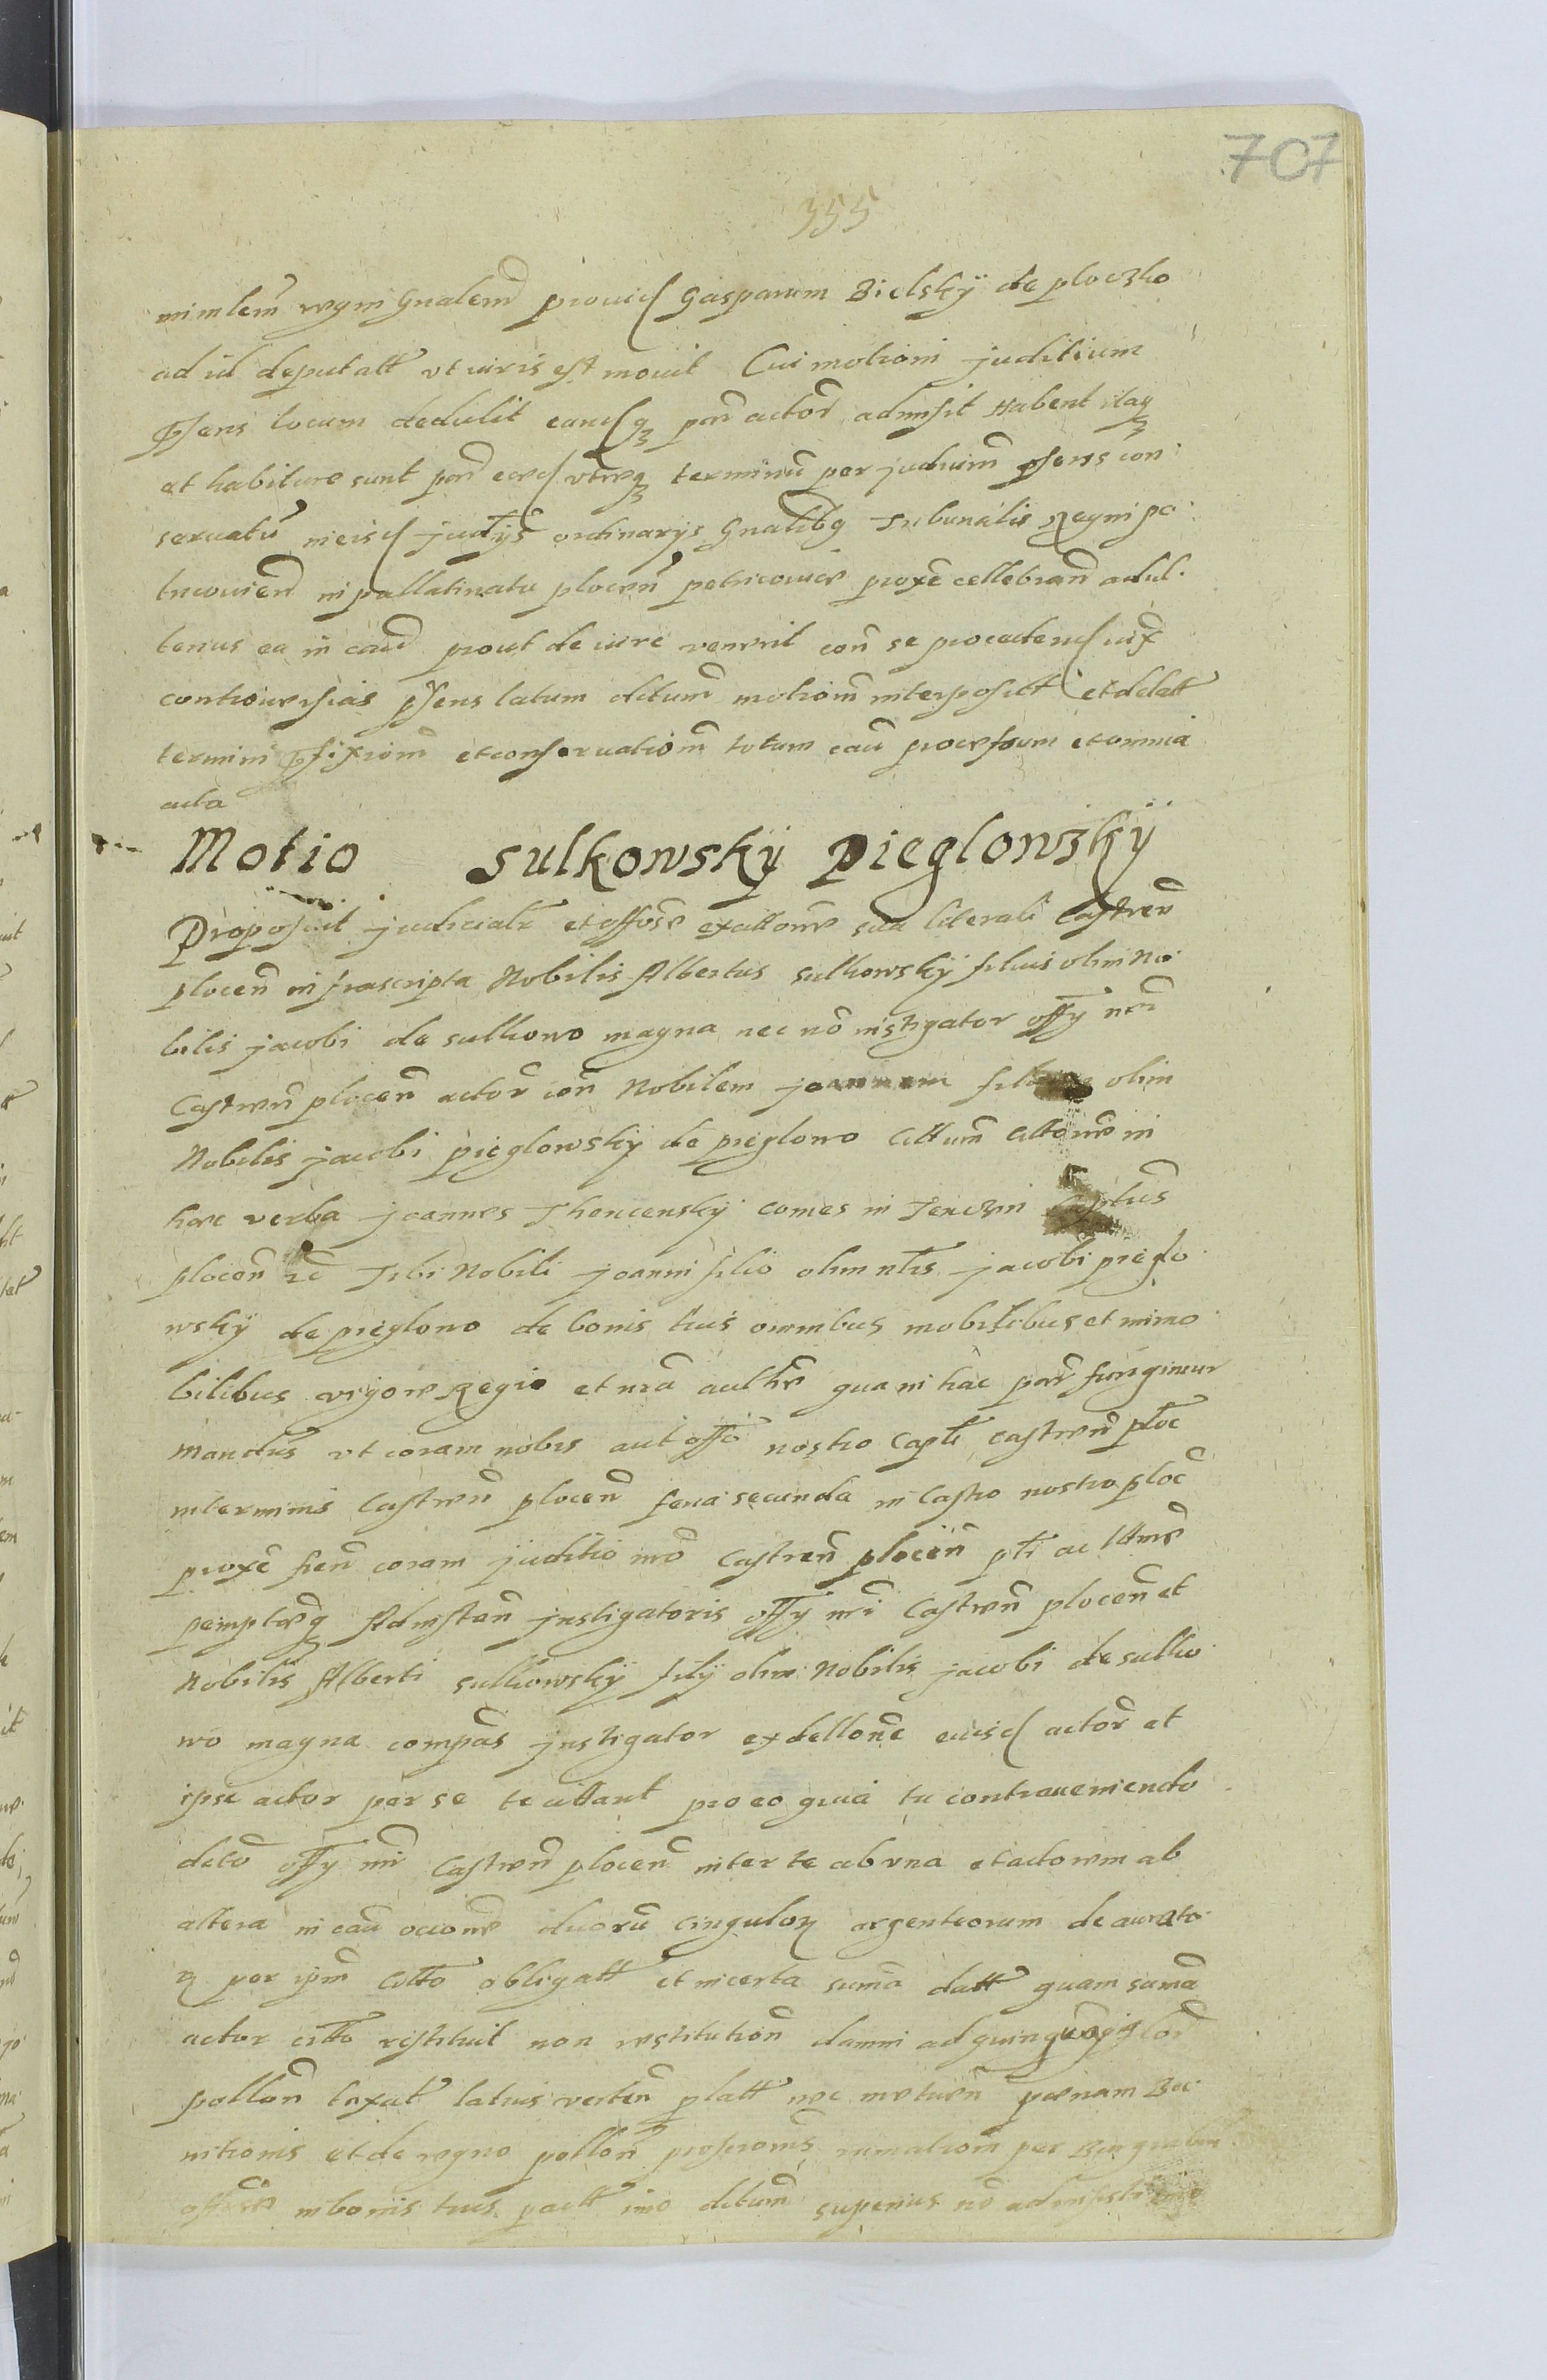 707
355
minlem regni Gnalem prouid Gasparum Bielsky de ploczko
ad id deputatt vt iuris est mouit Cui motioni juditium
psens locum dedulit eandqz par actor admisit Habent itaqz
et habiture sunt par eaed vtreqz terminu per judicium psens con
seruatu in eisd judtys ordinarys Gnalibq Tribunalis Regni pa
lucouien in pallatinatu plocen petricouie proxe cellebran adul
terius ea in cau prout de iure venerit con se procedend iux
controuersias psens latum ditum motiom interposict et delatt
termini psixiom et conseruatiom totum cau processum et omnia
acta
Motio Sulkowsky Pieglowsky
Proposuit judicialr et offose ex cittone sua literali Castren
plocen infrascripta Nobilis Albertus Sulkowsky filius olim No
bilis jacobi de sulkowo magna nec no instigator offy nri
Castren plocen actor con Nobilem joannem olim
Nobilis jacobi pieglowsky de pieglowo cittum cittone in
haec verba joannes Thencensky comes in Tenczin Captus
plocen rc Tibi Nobili joanni filio olim nlis jacobi pieglo
wsky de pieglowo de bonis tuis omnibus mobilibus et immo
bilibus vigore Regio et nra aulthe qua in hac par fungimur
mandus vt coram nobis aut offo nostro Capli castren ploc
in terminis Castren plocen feria secunda in Castro nostro ploc
proxe fien coram juditio nro Castren plocen pti ac
pemptreqz Ad instan jnstigatoris offy nri Castren plocen et
Nobilis Alberti sulkowsky fily olim Nobilis jacobi de sulko
wo magna compas jnstigator ex dellone eiusd actor et
ipse actor per se te cittant pro eo quia tu contraueniendo
deto offy nri Castren plocen inter te ab vna et actorem ab
altera in cau ocione duoru cinguloz argenteorum de aurato
z per ipm citto obligatt et in certa suma datt quam suma
actor citto restituit non restitution damni ad quinquaginta
pollon taxat latius verten platt nec metuen paenam Ban
nitionis et de regno pollon proscrionis
in bonis tuis pactt imo ditum superius no admisisti